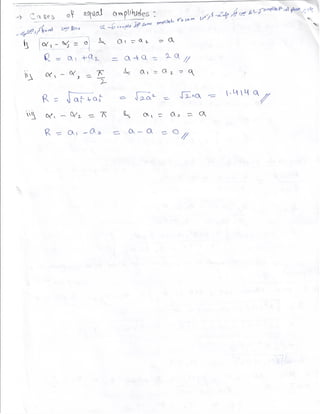 → Cases of equal amplitudes :
i) α₁ - α₂ = 0 & a₁ = a₂ = a
R = a₁ + a₂ = a + a = 2a //
ii) α₁ - α₂ = π/2 & a₁ = a₂ = a
R = √a₁² + a₂² = √2a² = √2·a = 1.414 a //
iii) α₁ - α₂ = π & a₁ = a₂ = a
R = a₁ - a₂ = a - a = 0 //